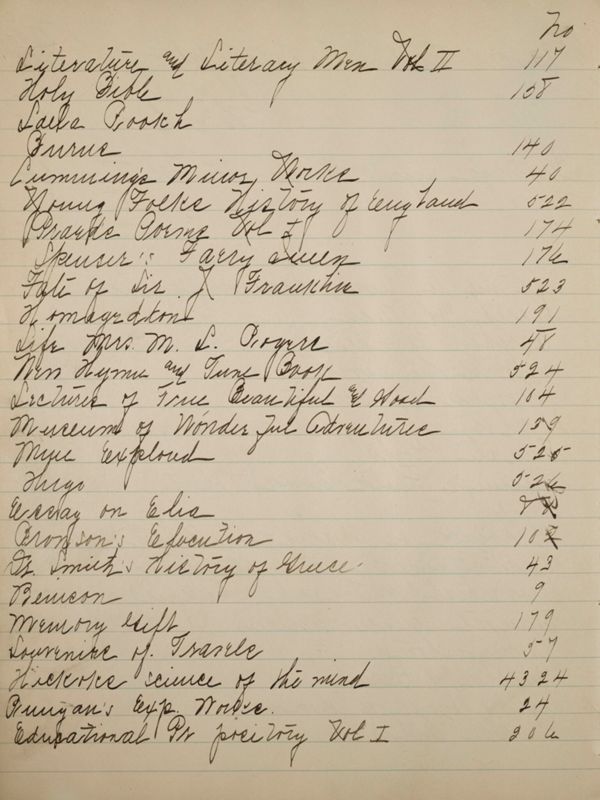 No
Literature and Literary Men Vol II 117
Holy Bible 158
Lalla Rookh
Burns 140
Cummings Minor Works 40
Young Folks History of England 522
Poems Vol I 174
Spenser's Faery Queen 176
Fate of Sir J Franklin 523
191
Life Mrs. M. L. Rogers 48
New Hymn and Tune Book 524
Lectures of True Beautiful & Good 104
Museum of Wonderful Adventures 159
525
Hugo 526
Essay on Elia
Bronson's Elocution
Dr. Smith's History of Greece. 43
9
Memory Gift 179
Souvenirs of Travels 57
Hickoks science of the mind 4324
Bunyan's Exp. Works. 24
Educational Vol I 206